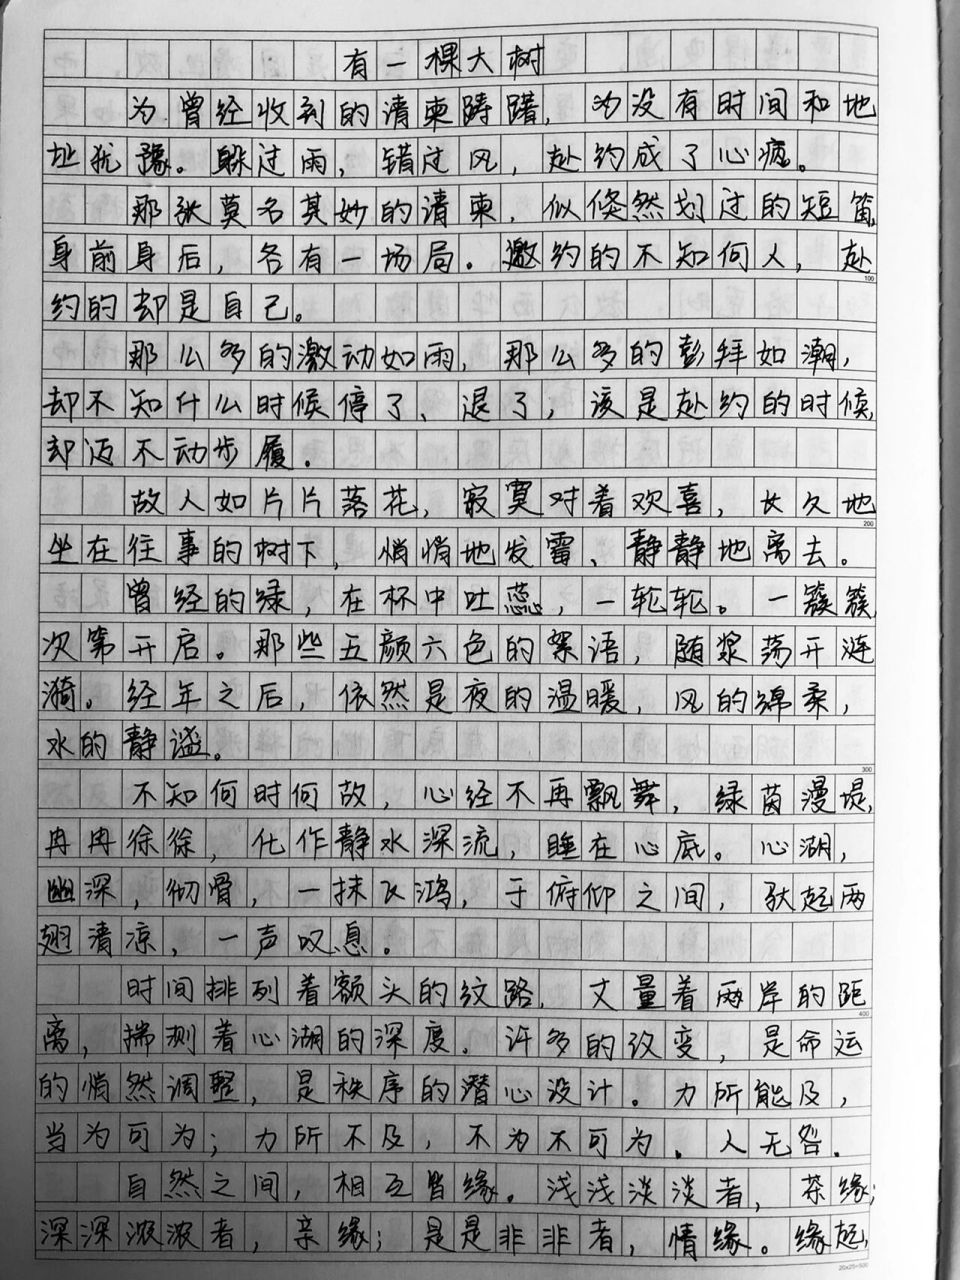 有一棵大树
为曾经收到的请柬踌躇，为没有时间和地
址犹豫。躲过雨，错过风，赴约成了心病。
那张莫名其妙的请柬，似倏然划过的短笛，
身前身后，各有一场局。邀约的不知何人，赴
约的却是自己。
那么多的激动如雨，那么多的彭拜如潮，
却不知什么时候停了、退了，该是赴约的时候，
却迈不动步履。
故人如片片落花，寂寞对着欢喜，长久地
坐在往事的树下，悄悄地发霉、静静地离去。
曾经的绿，在杯中吐蕊，一轮轮。一簇簇，
次第开启。那些五颜六色的絮语，随浆荡开涟
漪。经年之后，依然是夜的温暖，风的绵柔，
水的静谧。
不知何时何故，心经不再飘舞，绿茵漫堤，
冉冉徐徐，化作静水深流，睡在心底。心湖，
幽深，彻骨，一抹飞鸿，于俯仰之间，驮起两
翅清凉，一声叹息。
时间排列着额头的纹路，丈量着两岸的距
离，揣测着心湖的深度。许多的改变，是命运
的悄然调整，是秩序的潜心设计。力所能及，
当为可为；力所不及，不为不可为。人无咎。
自然之间，相互皆缘。浅浅淡淡者，茶缘；
深深浓浓者，亲缘；是是非非者，情缘。缘起，
100
200
300
400
20x25=500